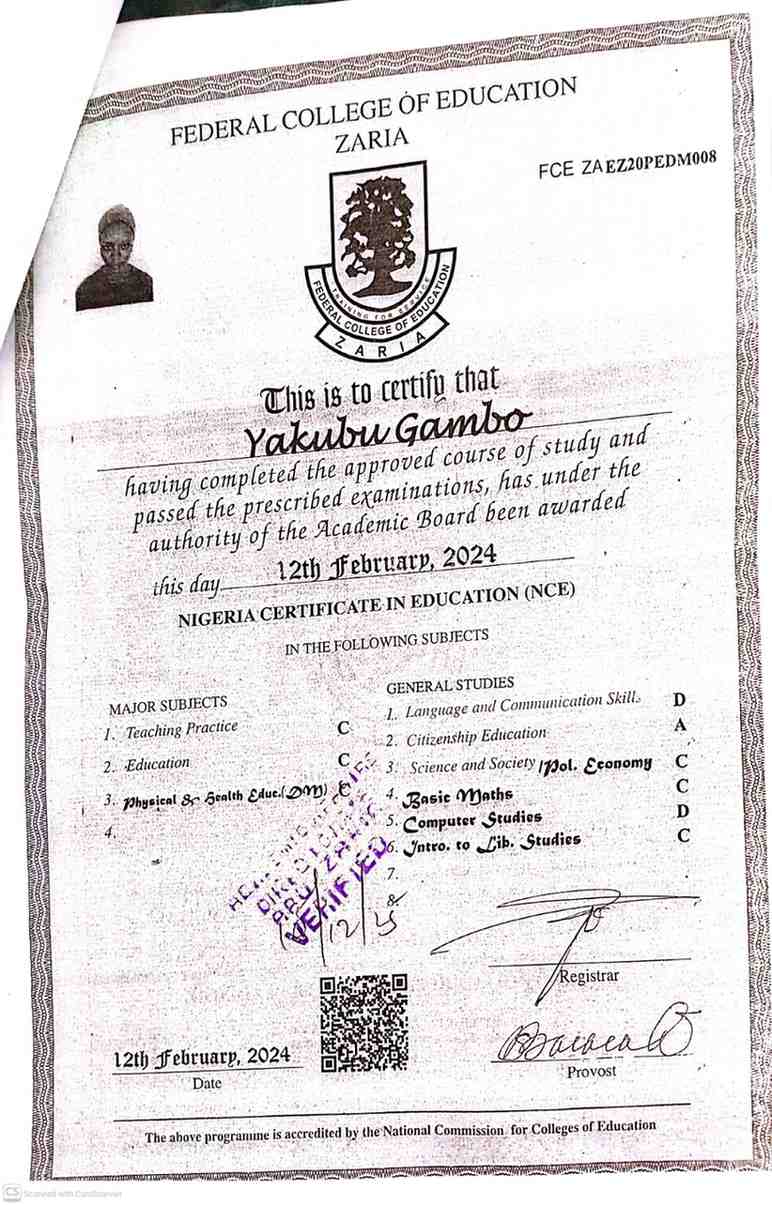 FEDERAL COLLEGE OF EDUCATION
ZARIA
FCE ZAEZ20PEDM008
TRAINING FOR SERVICE
FEDERAL COLLEGE OF EDUCATION
ZARIA
This is to certify that
Yakubu Gambo
having completed the approved course of study and
passed the prescribed examinations, has under the
authority of the Academic Board been awarded
this day 12th February, 2024
NIGERIA CERTIFICATE IN EDUCATION (NCE)
IN THE FOLLOWING SUBJECTS
MAJOR SUBJECTS
1. Teaching Practice C
2. Education C
3. Physical & Health Educ.(DM) C
4.
GENERAL STUDIES
1. Language and Communication Skills D
2. Citizenship Education A
3. Science and Society/Pol. Economy C
4. Basic Maths C
5. Computer Studies D
6. Intro. to Lib. Studies C
7.
8.
ZARIA
VERIFIED
12/25
Registrar
12th February, 2024
Date
Provost
The above programme is accredited by the National Commission for Colleges of Education
CS Scanned with CamScanner